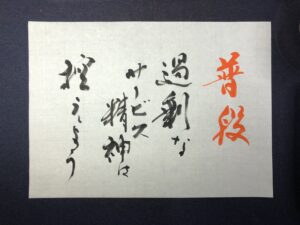 普段
過剰な
サービス
精神は
控えよう